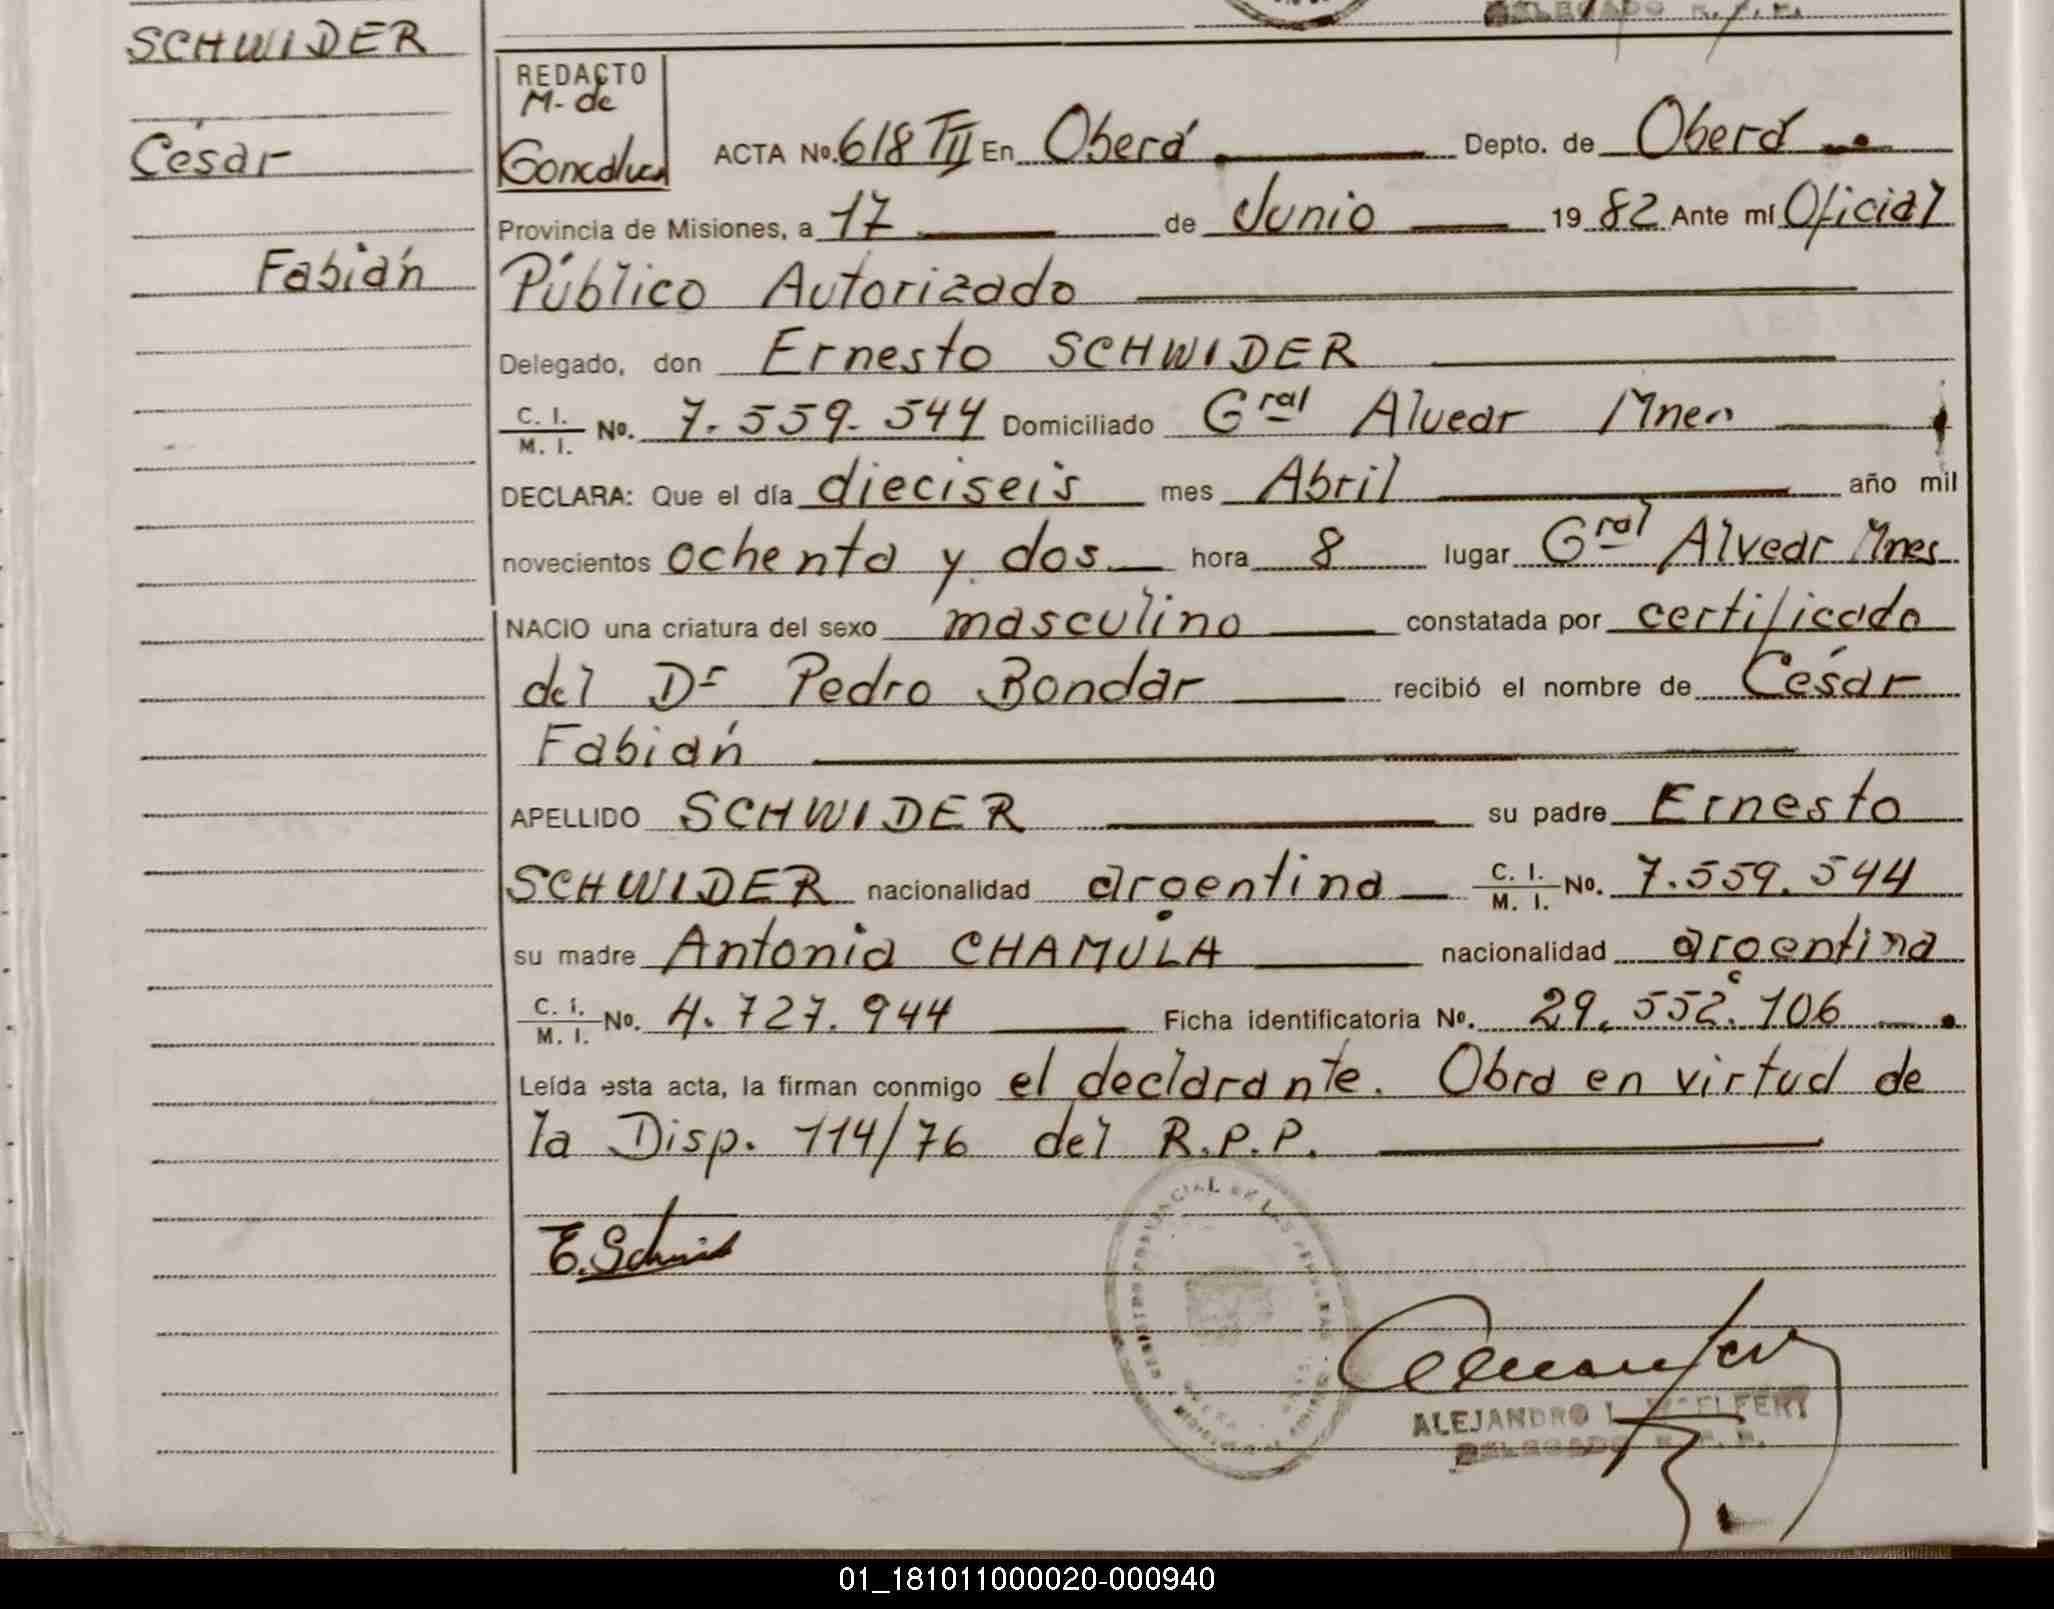 SCHWIDER
César
Fabián
REDACTO
M. de
ACTA No. 618 TII En Oberá Depto. de Oberá
Provincia de Misiones, a 17 de Junio 1982 Ante mí Oficial
Público Autorizado
Delegado, don Ernesto SCHWIDER
C. I. / M. I. No. 7.559.544 Domiciliado Gral Alvear Mnes
DECLARA: Que el día dieciseis mes Abril año mil
novecientos ochenta y dos hora 8 lugar Gral Alvear Mnes
NACIO una criatura del sexo masculino constatada por certificado
del Dr Pedro Bondar recibió el nombre de César
Fabián
APELLIDO SCHWIDER su padre Ernesto
SCHWIDER nacionalidad argentina C. I. / M. I. No. 7.559.544
su madre Antonia CHAMULA nacionalidad argentina
C. I. / M. I. No. 4.727.944 Ficha identificatoria No. 29.552.106
Leída esta acta, la firman conmigo el declarante. Obra en virtud de
la Disp. 114/76 del R.P.P.
E. Schwid
ALEJANDRO L.
DELEGADO R. P. P.
01_181011000020-000940